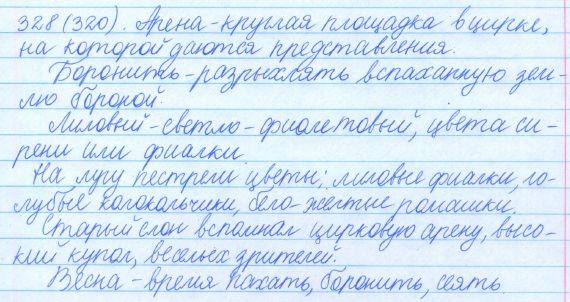 328 (320). Арена - круглая площадка в цирке,
на которой даются представления.
Боронить - разрыхлять вспаханную зем-
лю бороной.
Лиловый - светло-фиолетовый, цвета си-
рени или фиалки.
На лугу пестрели цветы: лиловые фиалки, го-
лубые колокольчики, бело-желтые ромашки.
Старый слон вспоминал цирковую арену, высо-
кий купол, веселых зрителей.
Весна - время пахать, боронить, сеять.